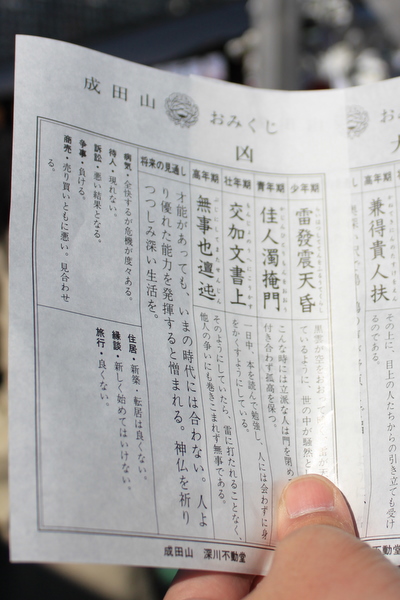 成田山
おみくじ
凶
少年期
雷發震天昏
青年期
佳人濁掩門
こんな時には立派な人は門を閉め
付き合わず孤高を保つ。
壮年期
交加文書上
一日中、本を読んで勉強し、人には会わずに身
をかくすようにしている。
高年期
無事也遭迍
そのようにしていたら、雷に打たれることなく、
他人の争いにも巻きこまれず無事である。
将来の見通し
才能があっても、いまの時代には合わない。人よ
り優れた能力を発揮すると憎まれる。神仏を祈り
つつしみ深い生活を。
病気・全快するが危機が度々ある。
待人・現れない。
訴訟・悪い結果となる。
争事・負ける。
商売・売り買いともに悪い。見合わせ
る。
住居・新築・転居は良くない。
縁談・新しく始めてはいけない。
旅行・良くない。
成田山 深川不動堂
兼得貴人扶
その上に、目上の人たちからの引き立ても受け
るのである。